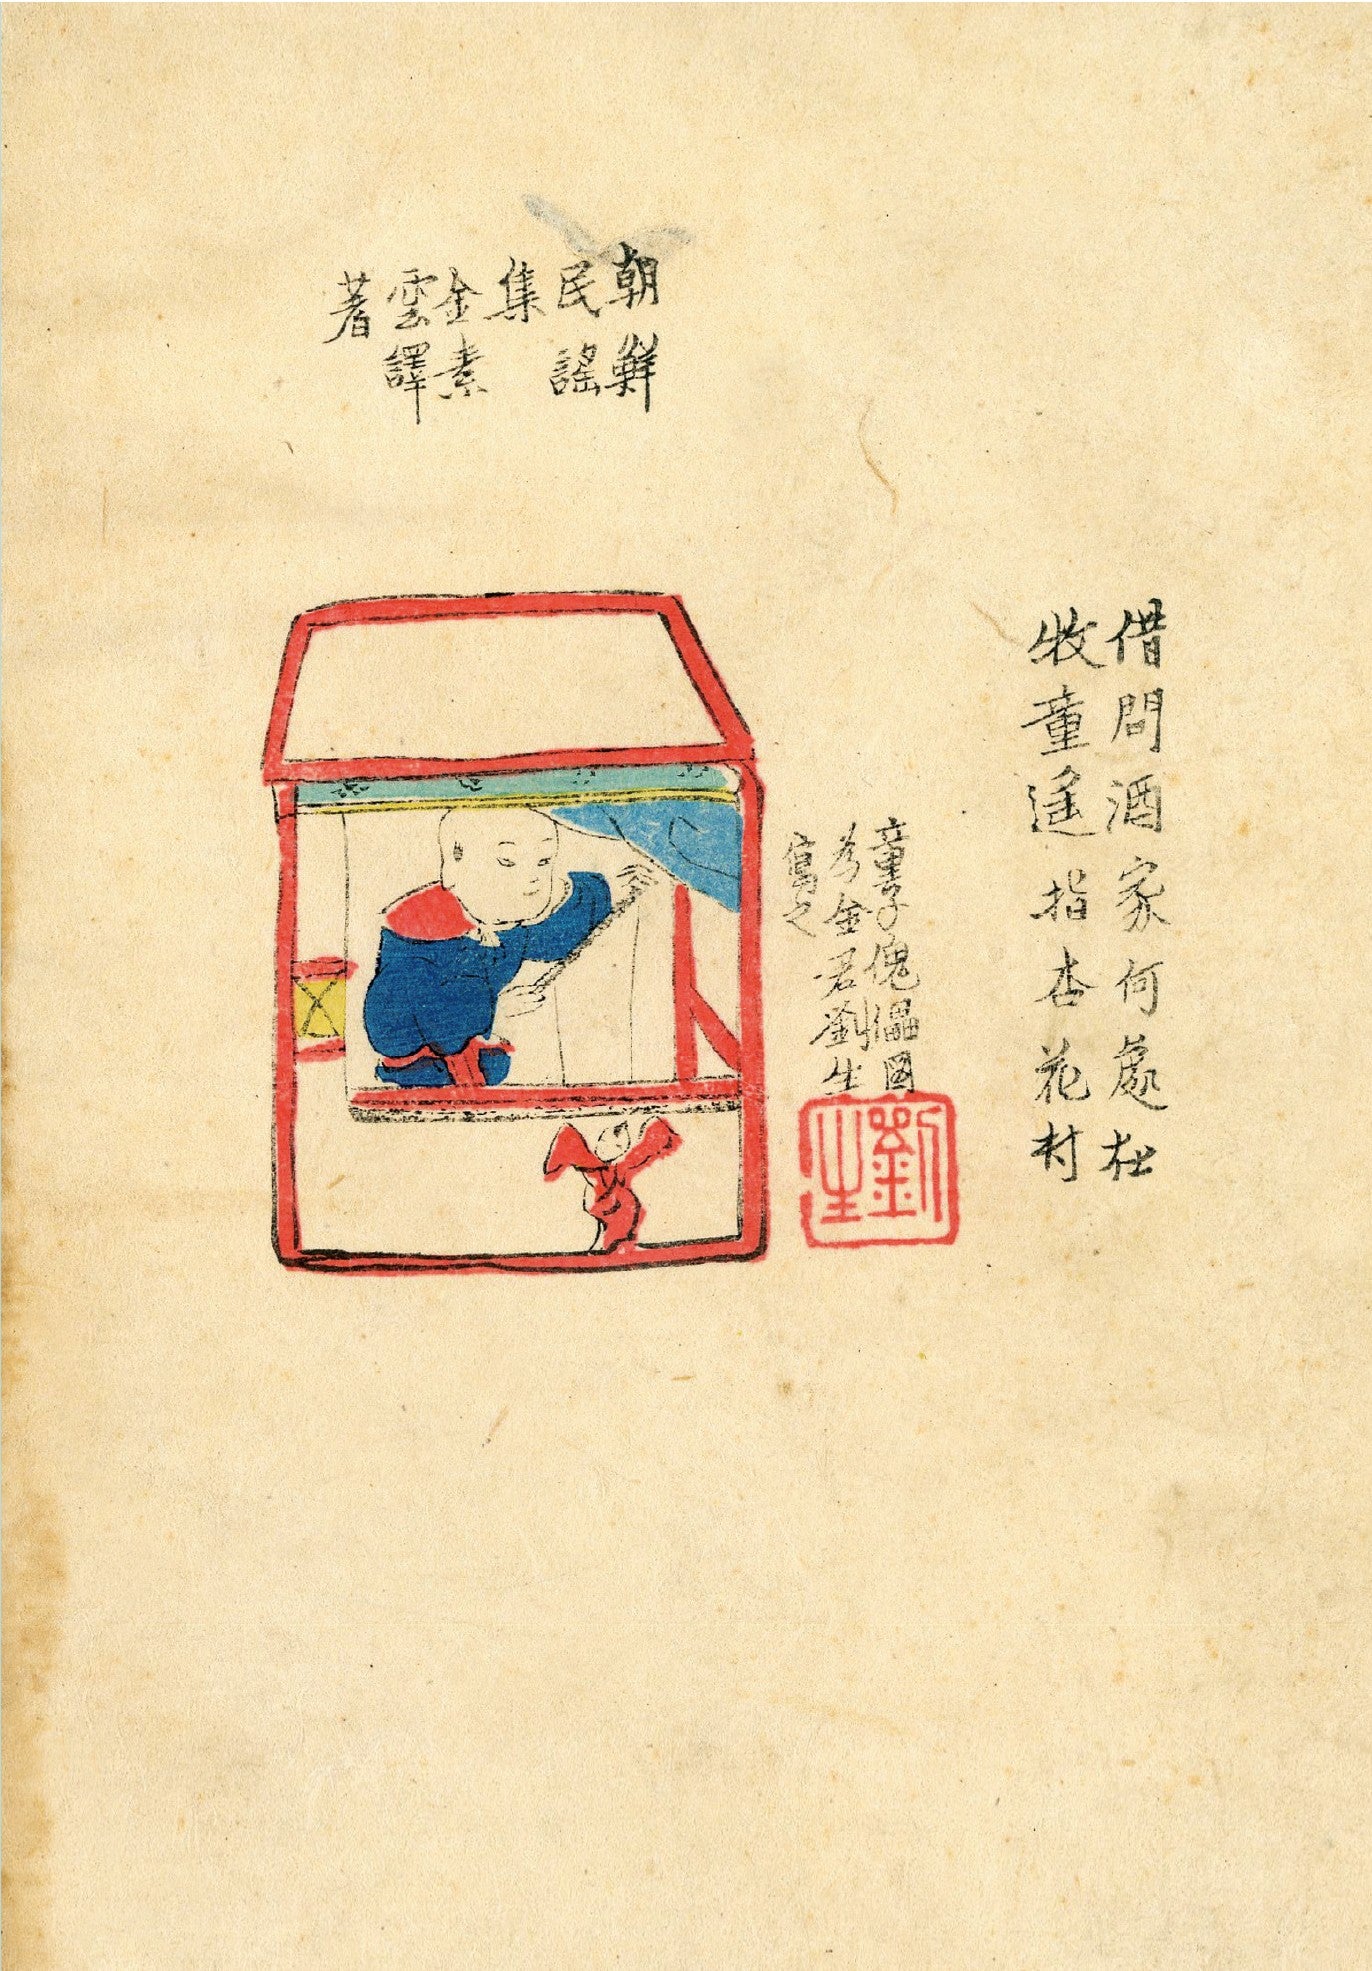 朝鮮
民謠
集
金素
雲譯
著
借問酒家何處在
牧童遙指杏花村
童子傀儡図
為金君劉生
寫之
劉生